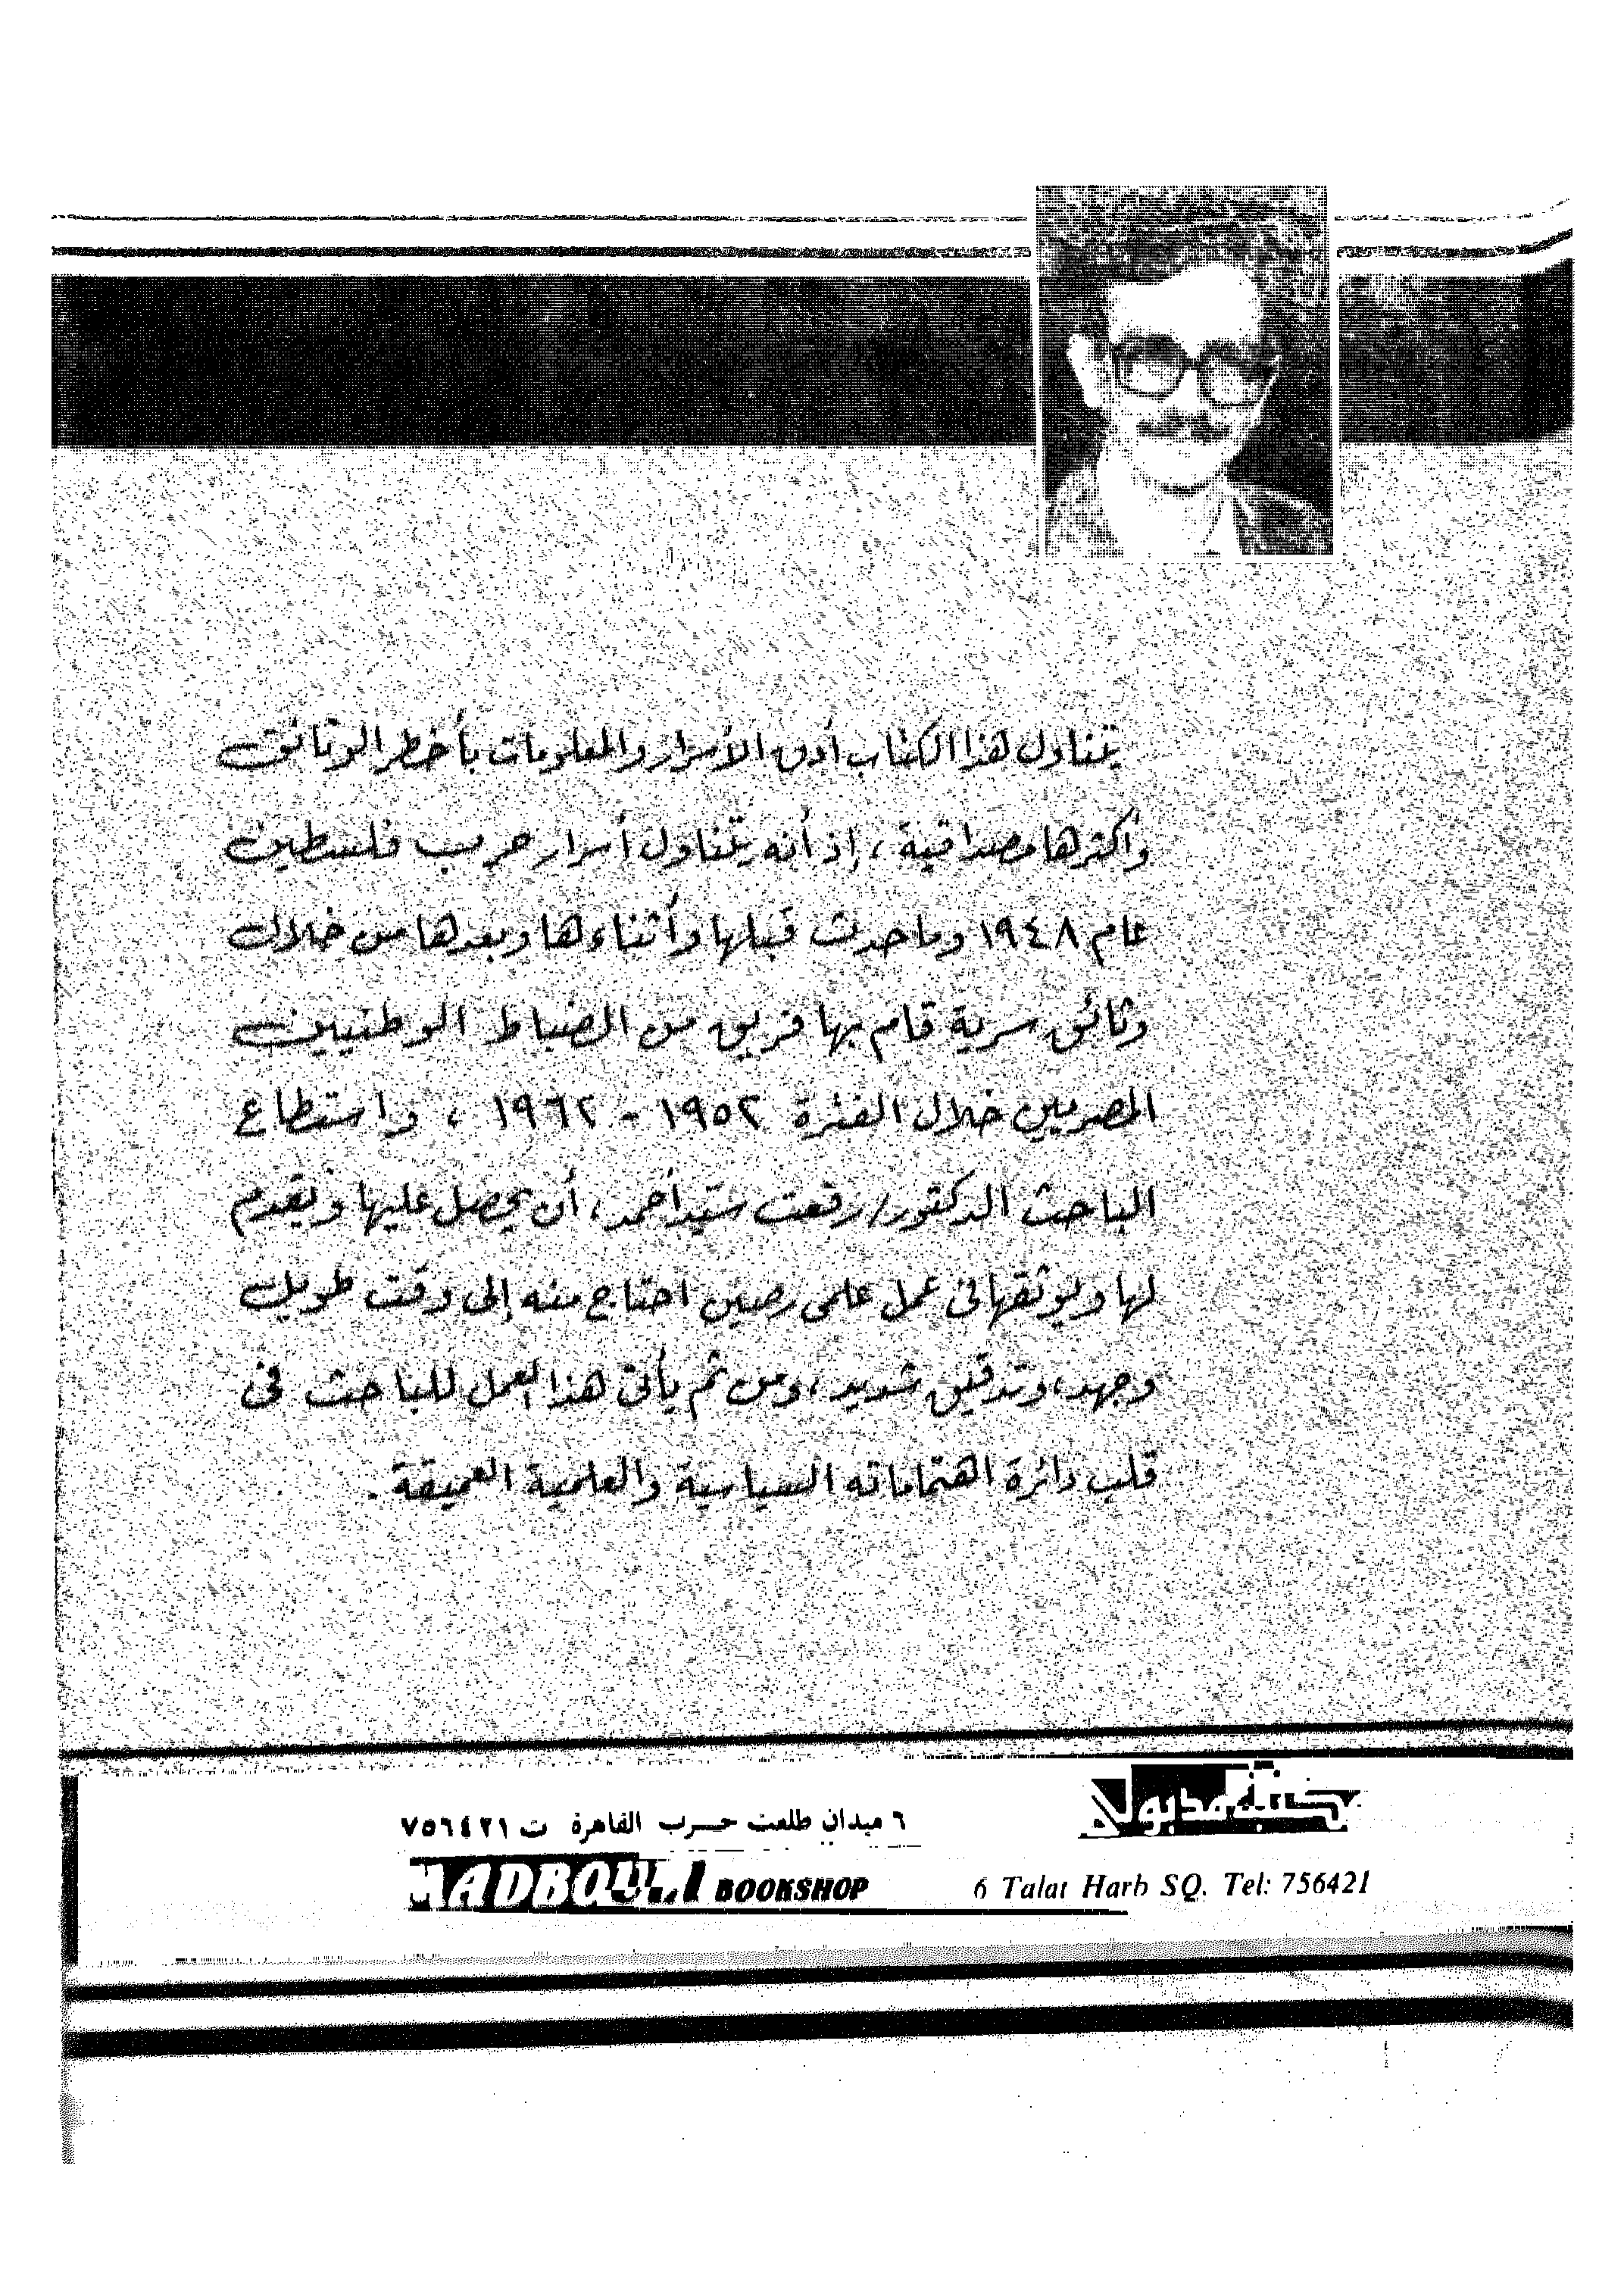 يتناول هذا الكتاب أدق الأسرار والمعلومات بأخطر الوثائق
وأكثرها مصداقية ، إذ أنه يتناول أسرار حرب فلسطين
عام ١٩٤٨ وما حدث قبلها وأثناءها وبعدها من خلال
وثائق سرية قام بها فريق من الضباط الوطنيين
المصريين خلال الفترة ١٩٥٢ - ١٩٦٢ ، واستطاع
الباحث الدكتور/ رفعت سيد أحمد ، أن يحصل عليها ويقدم
لها ويوثقها فى عمل علمى رصين احتاج منه إلى وقت طويل
وجهد، وتدقيق شديد ، ومن ثم يأتى هذا العمل للباحث فى
قلب دائرة اهتماماته السياسية والعلمية العميقة .
مكتبة مدبولى
٦ ميدان طلعت حرب القاهرة ت ٧٥٦٤٢١
MADBOULI BOOKSHOP
6 Talat Harb SQ. Tel: 756421